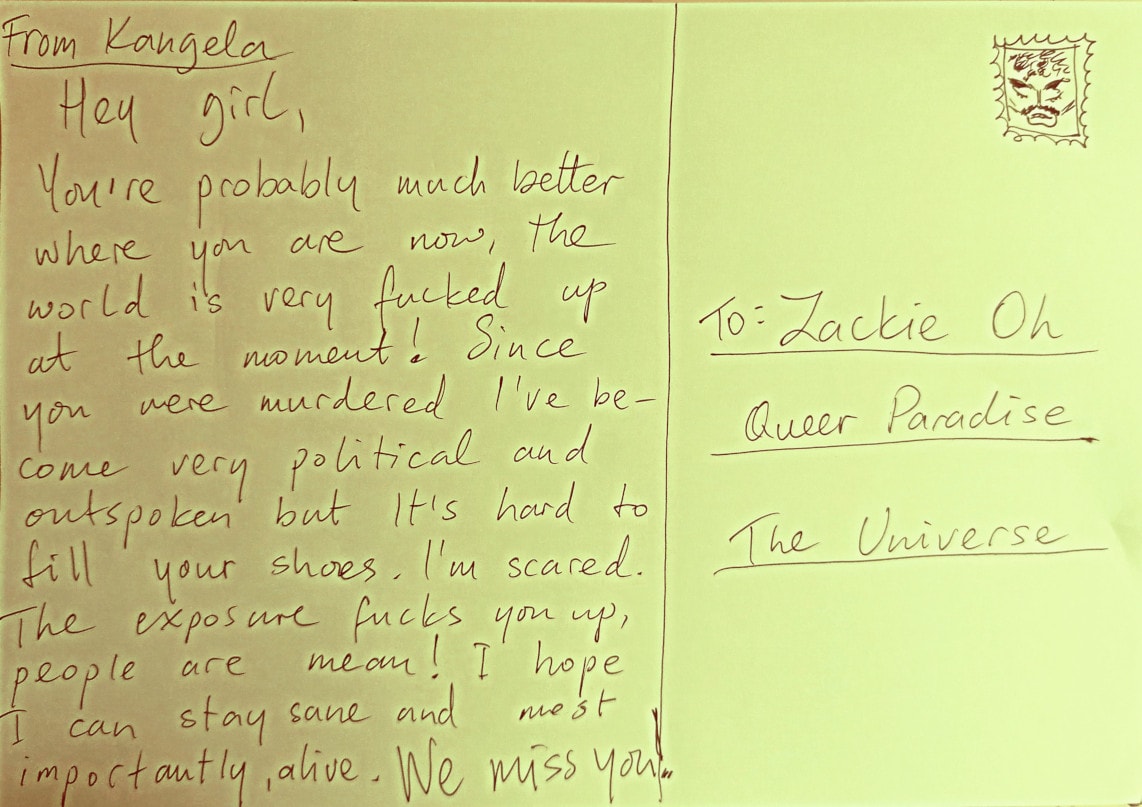 From Kangela
Hey girl,
You're probably much better
where you are now, the
world is very fucked up
at the moment! Since
you were murdered I've be-
come very political and
outspoken but It's hard to
fill your shoes. I'm scared.
The exposure fucks you up,
people are mean! I hope
I can stay sane and most
importantly, alive. We miss you!..
To: Zackie Oh
Queer Paradise
The Universe